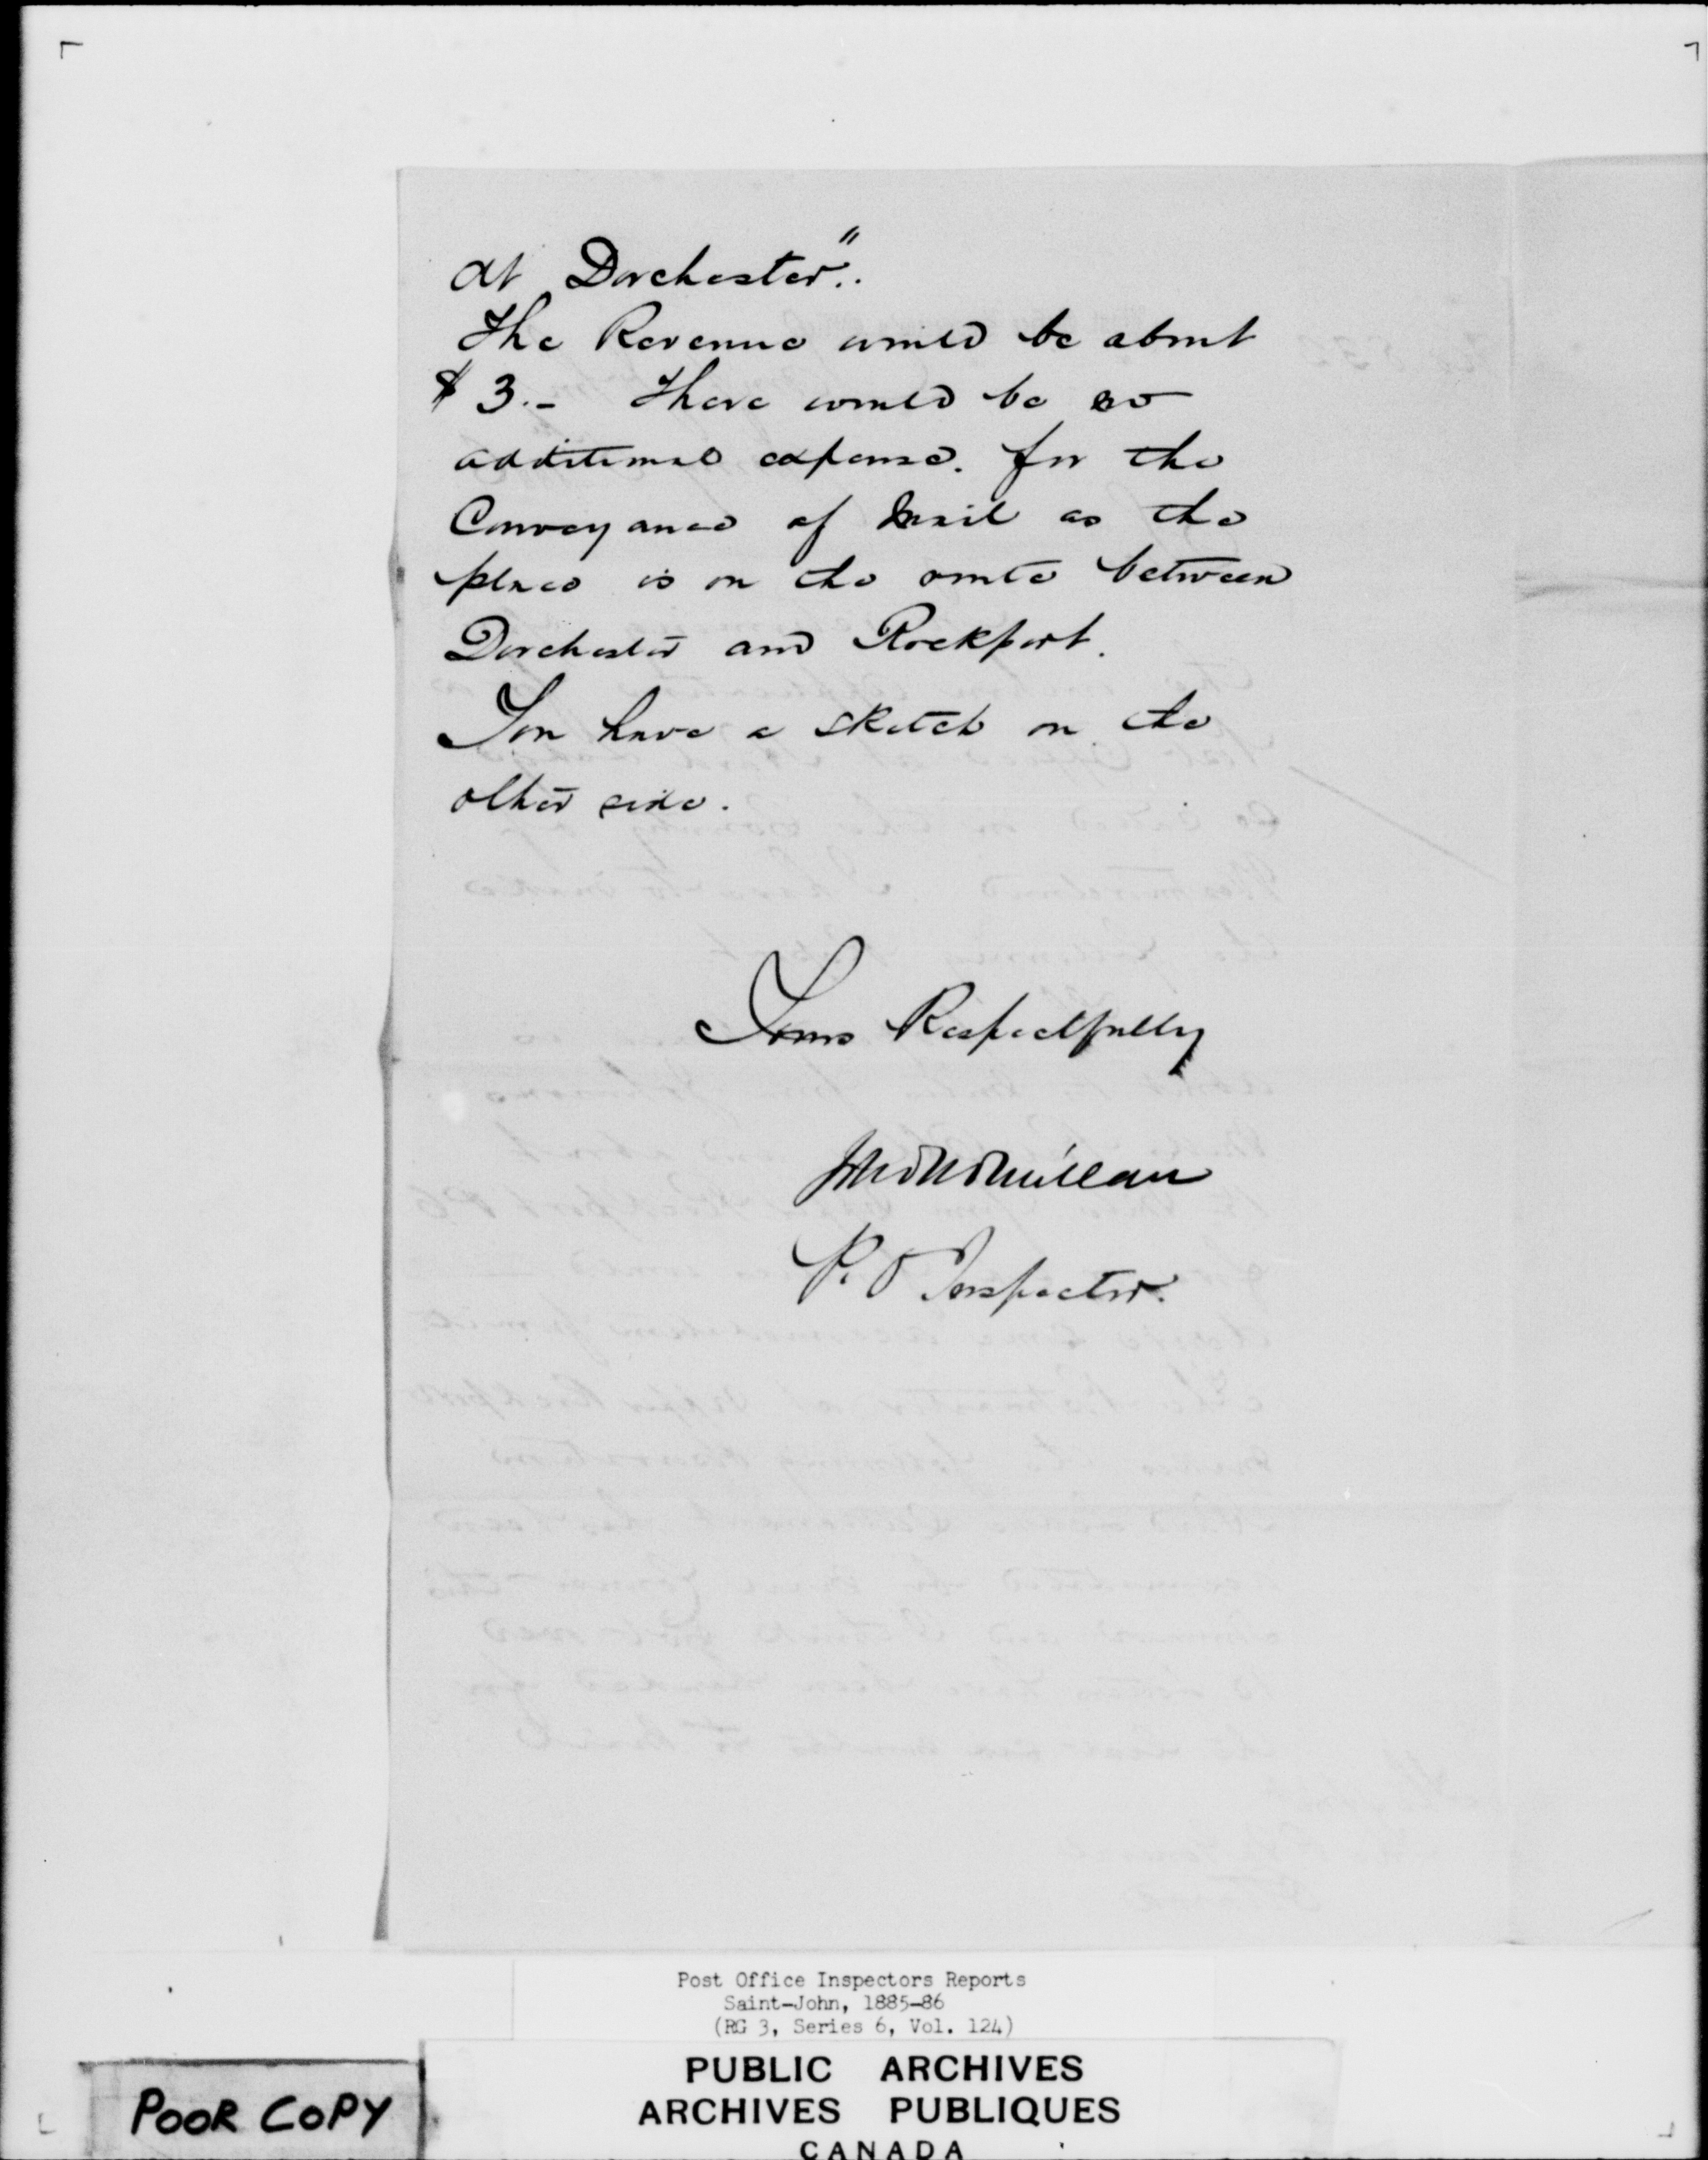 at Dorchester".
The Revenue would be about
$3.- There would be no
additional expense. for the
Conveyance of Mail as the
place is on the route between
Dorchester and Rockport.
You have a sketch on the
other side.
Yours Respectfully
McMillan
P. O Inspector.
Post Office Inspectors Reports
Saint-John, 1885-86
(RG 3, Series 6, Vol. 124)
PUBLIC ARCHIVES
ARCHIVES PUBLIQUES
CANADA
POOR COPY